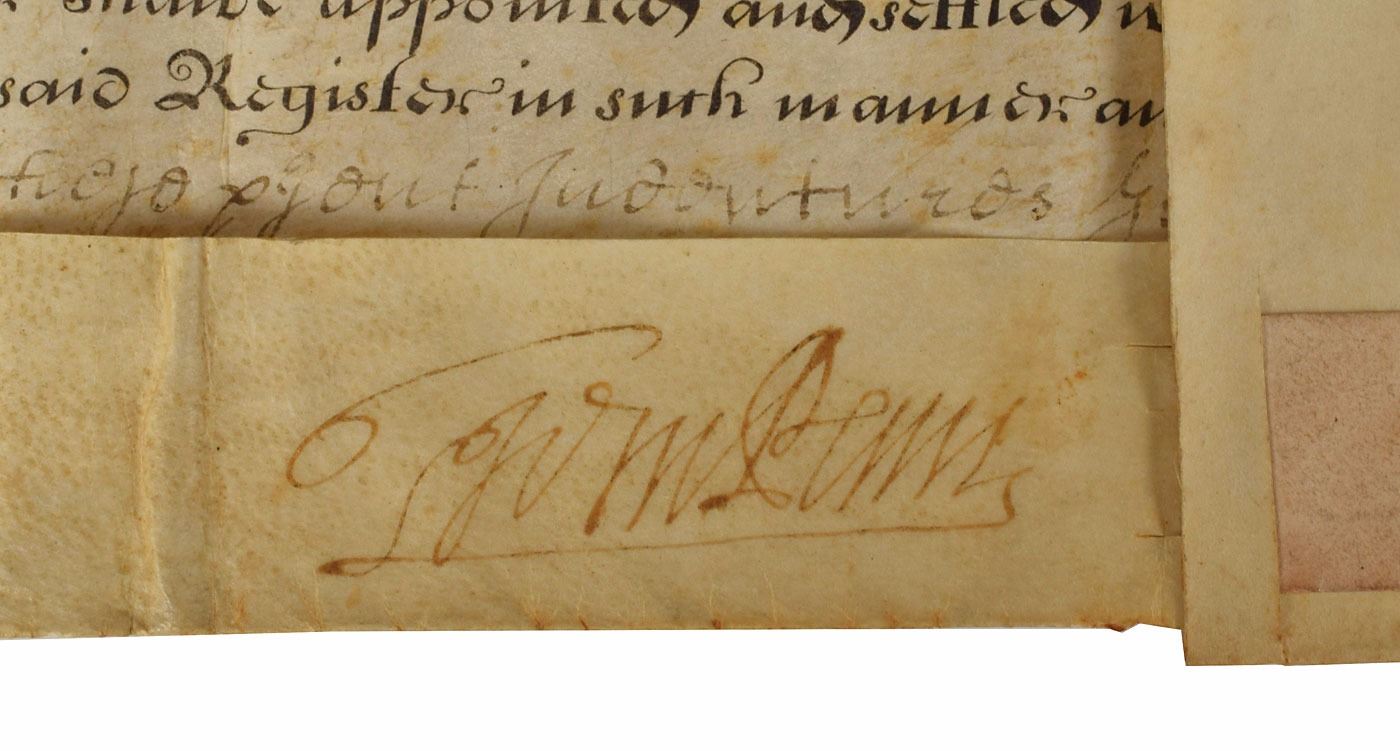 shalbe appointed and settled
said Register in such manner
these p'sent Indentures
Wm Penn